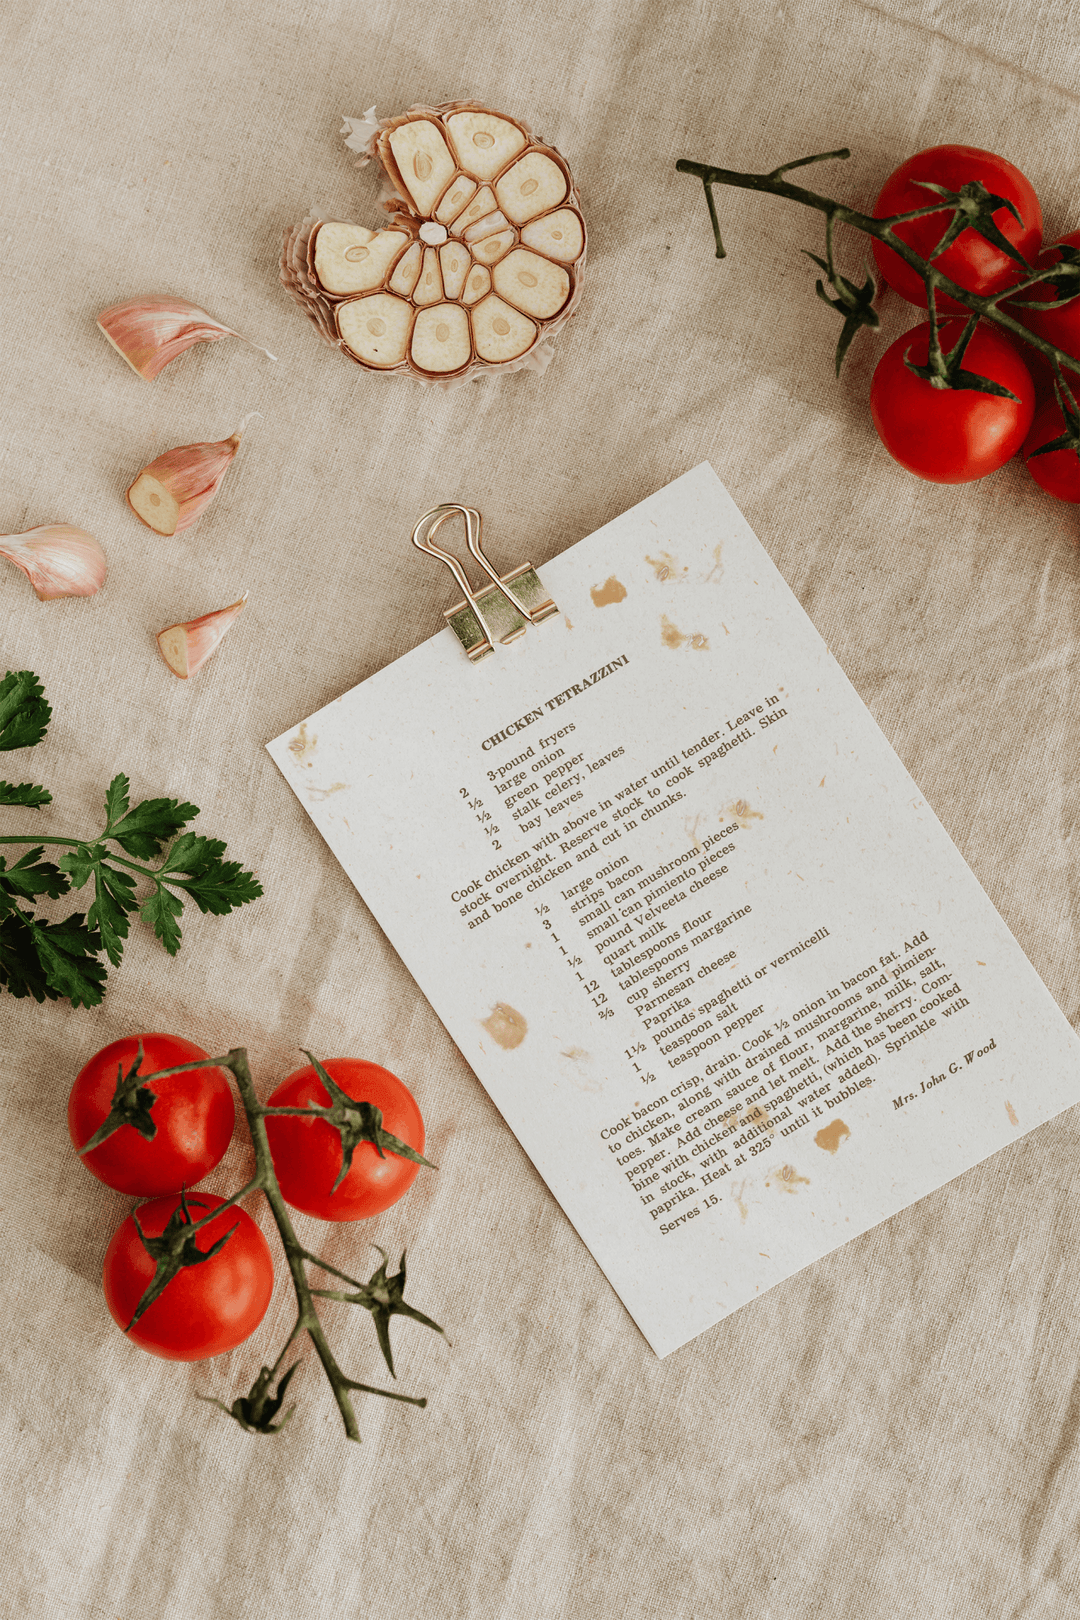 CHICKEN TETRAZZINI
2 3-pound fryers
½ large onion
½ green pepper
½ stalk celery, leaves
2 bay leaves
Cook chicken with above in water until tender. Leave in
stock overnight. Reserve stock to cook spaghetti. Skin
and bone chicken and cut in chunks.
½ large onion
3 strips bacon
1 small can mushroom pieces
1 small can pimiento pieces
½ pound Velveeta cheese
1 quart milk
12 tablespoons flour
12 tablespoons margarine
⅔ cup sherry
Parmesan cheese
Paprika
1½ pounds spaghetti or vermicelli
1 teaspoon salt
½ teaspoon pepper
Cook bacon crisp, drain. Cook ½ onion in bacon fat. Add
to chicken, along with drained mushrooms and pimien-
toes. Make cream sauce of flour, margarine, milk, salt,
pepper. Add cheese and let melt. Add the sherry. Com-
bine with chicken and spaghetti, (which has been cooked
in stock, with additional water added). Sprinkle with
paprika. Heat at 325° until it bubbles.
Serves 15.
Mrs. John G. Wood